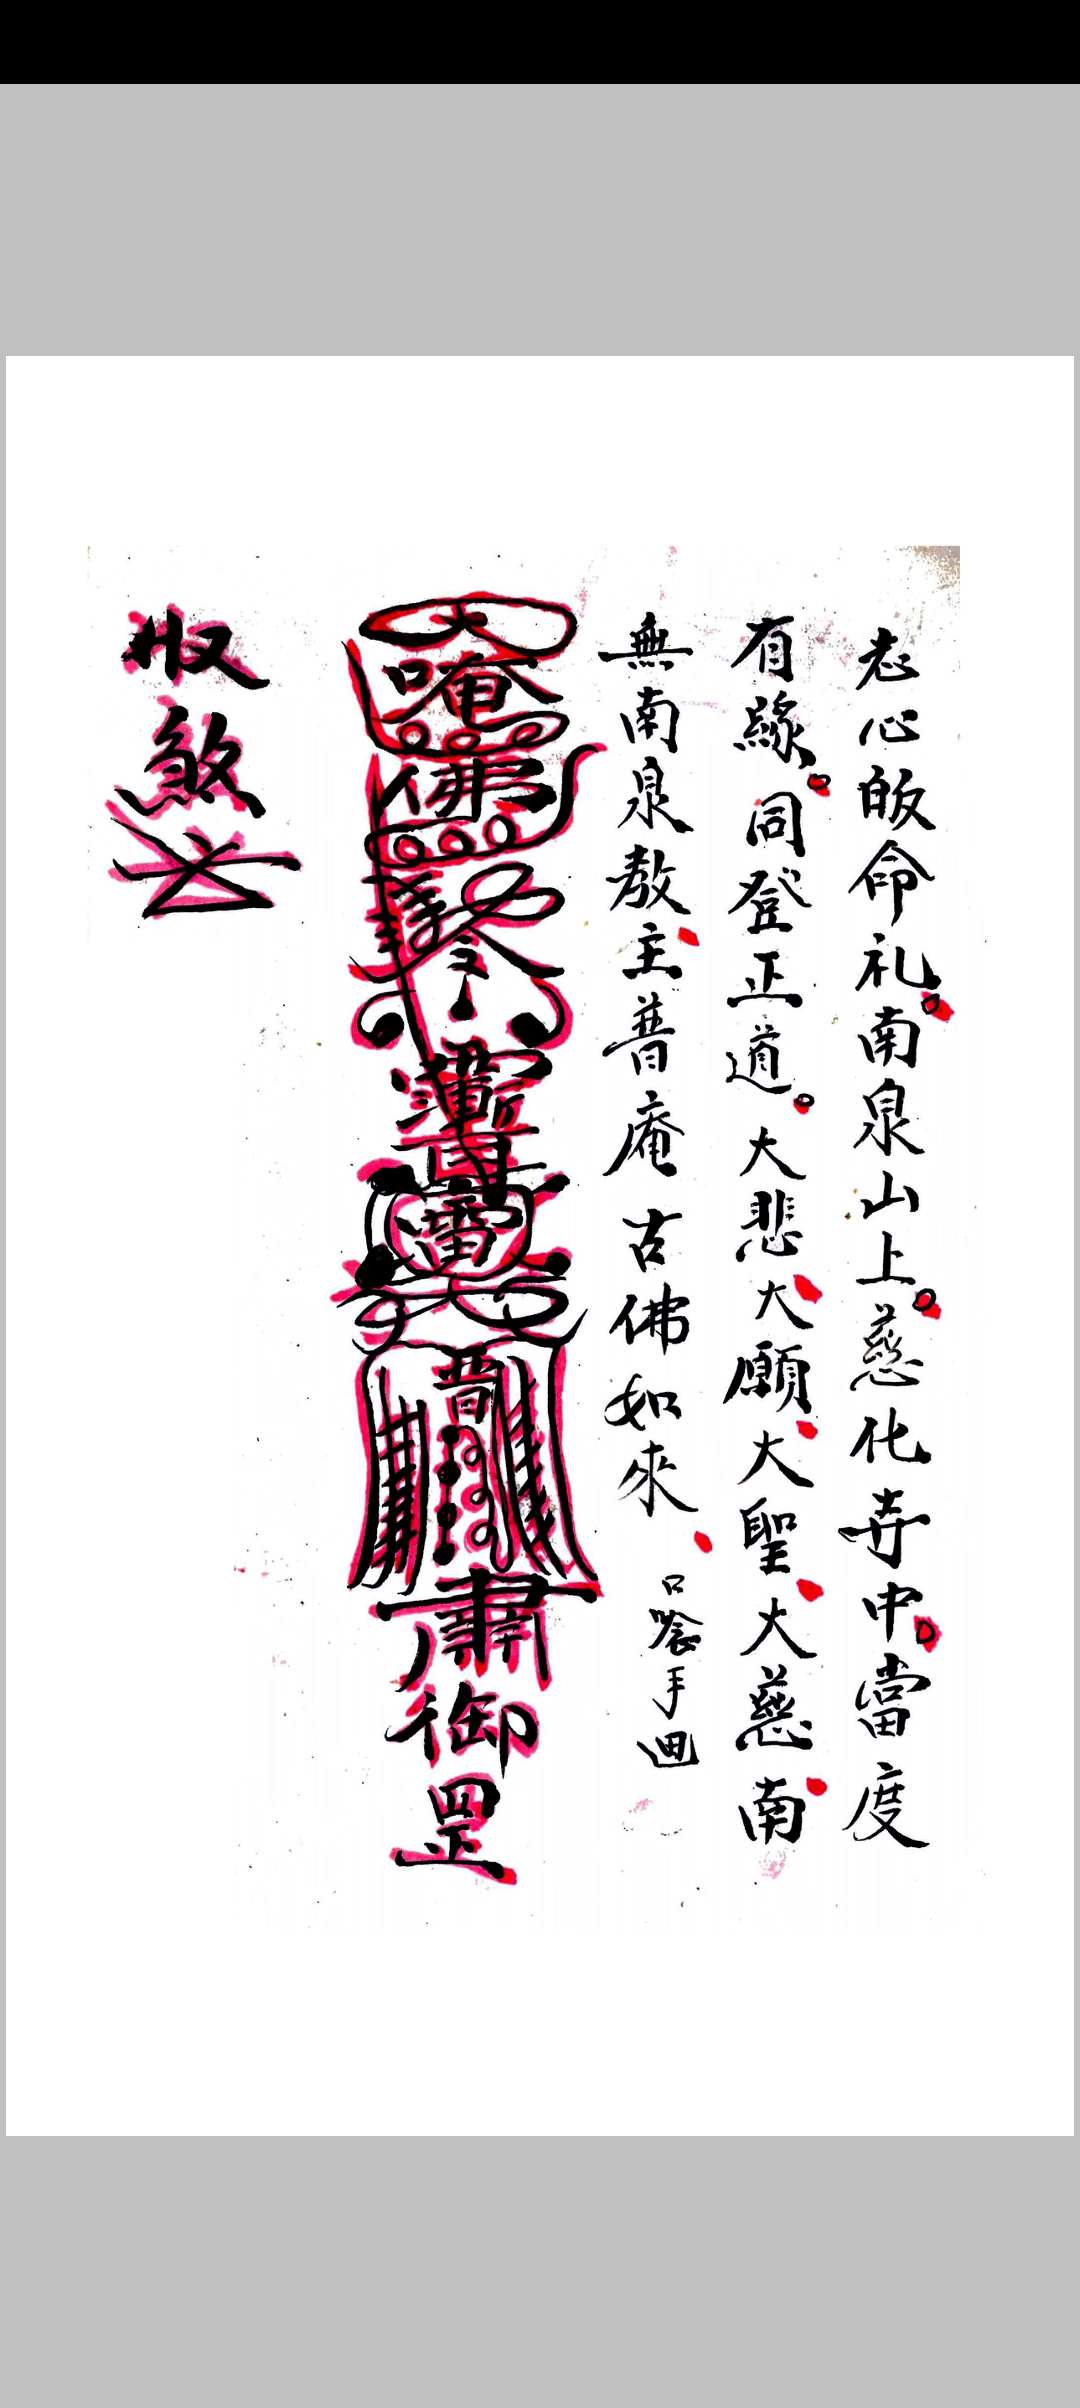 志心皈命礼。南泉山上。慈化寺中。當度
有緣。同登正道。大悲大願大聖大慈南
無南泉教主普庵古佛如來
口唸手画
大
唵
佛
雷
普
肅
御
罡
收煞